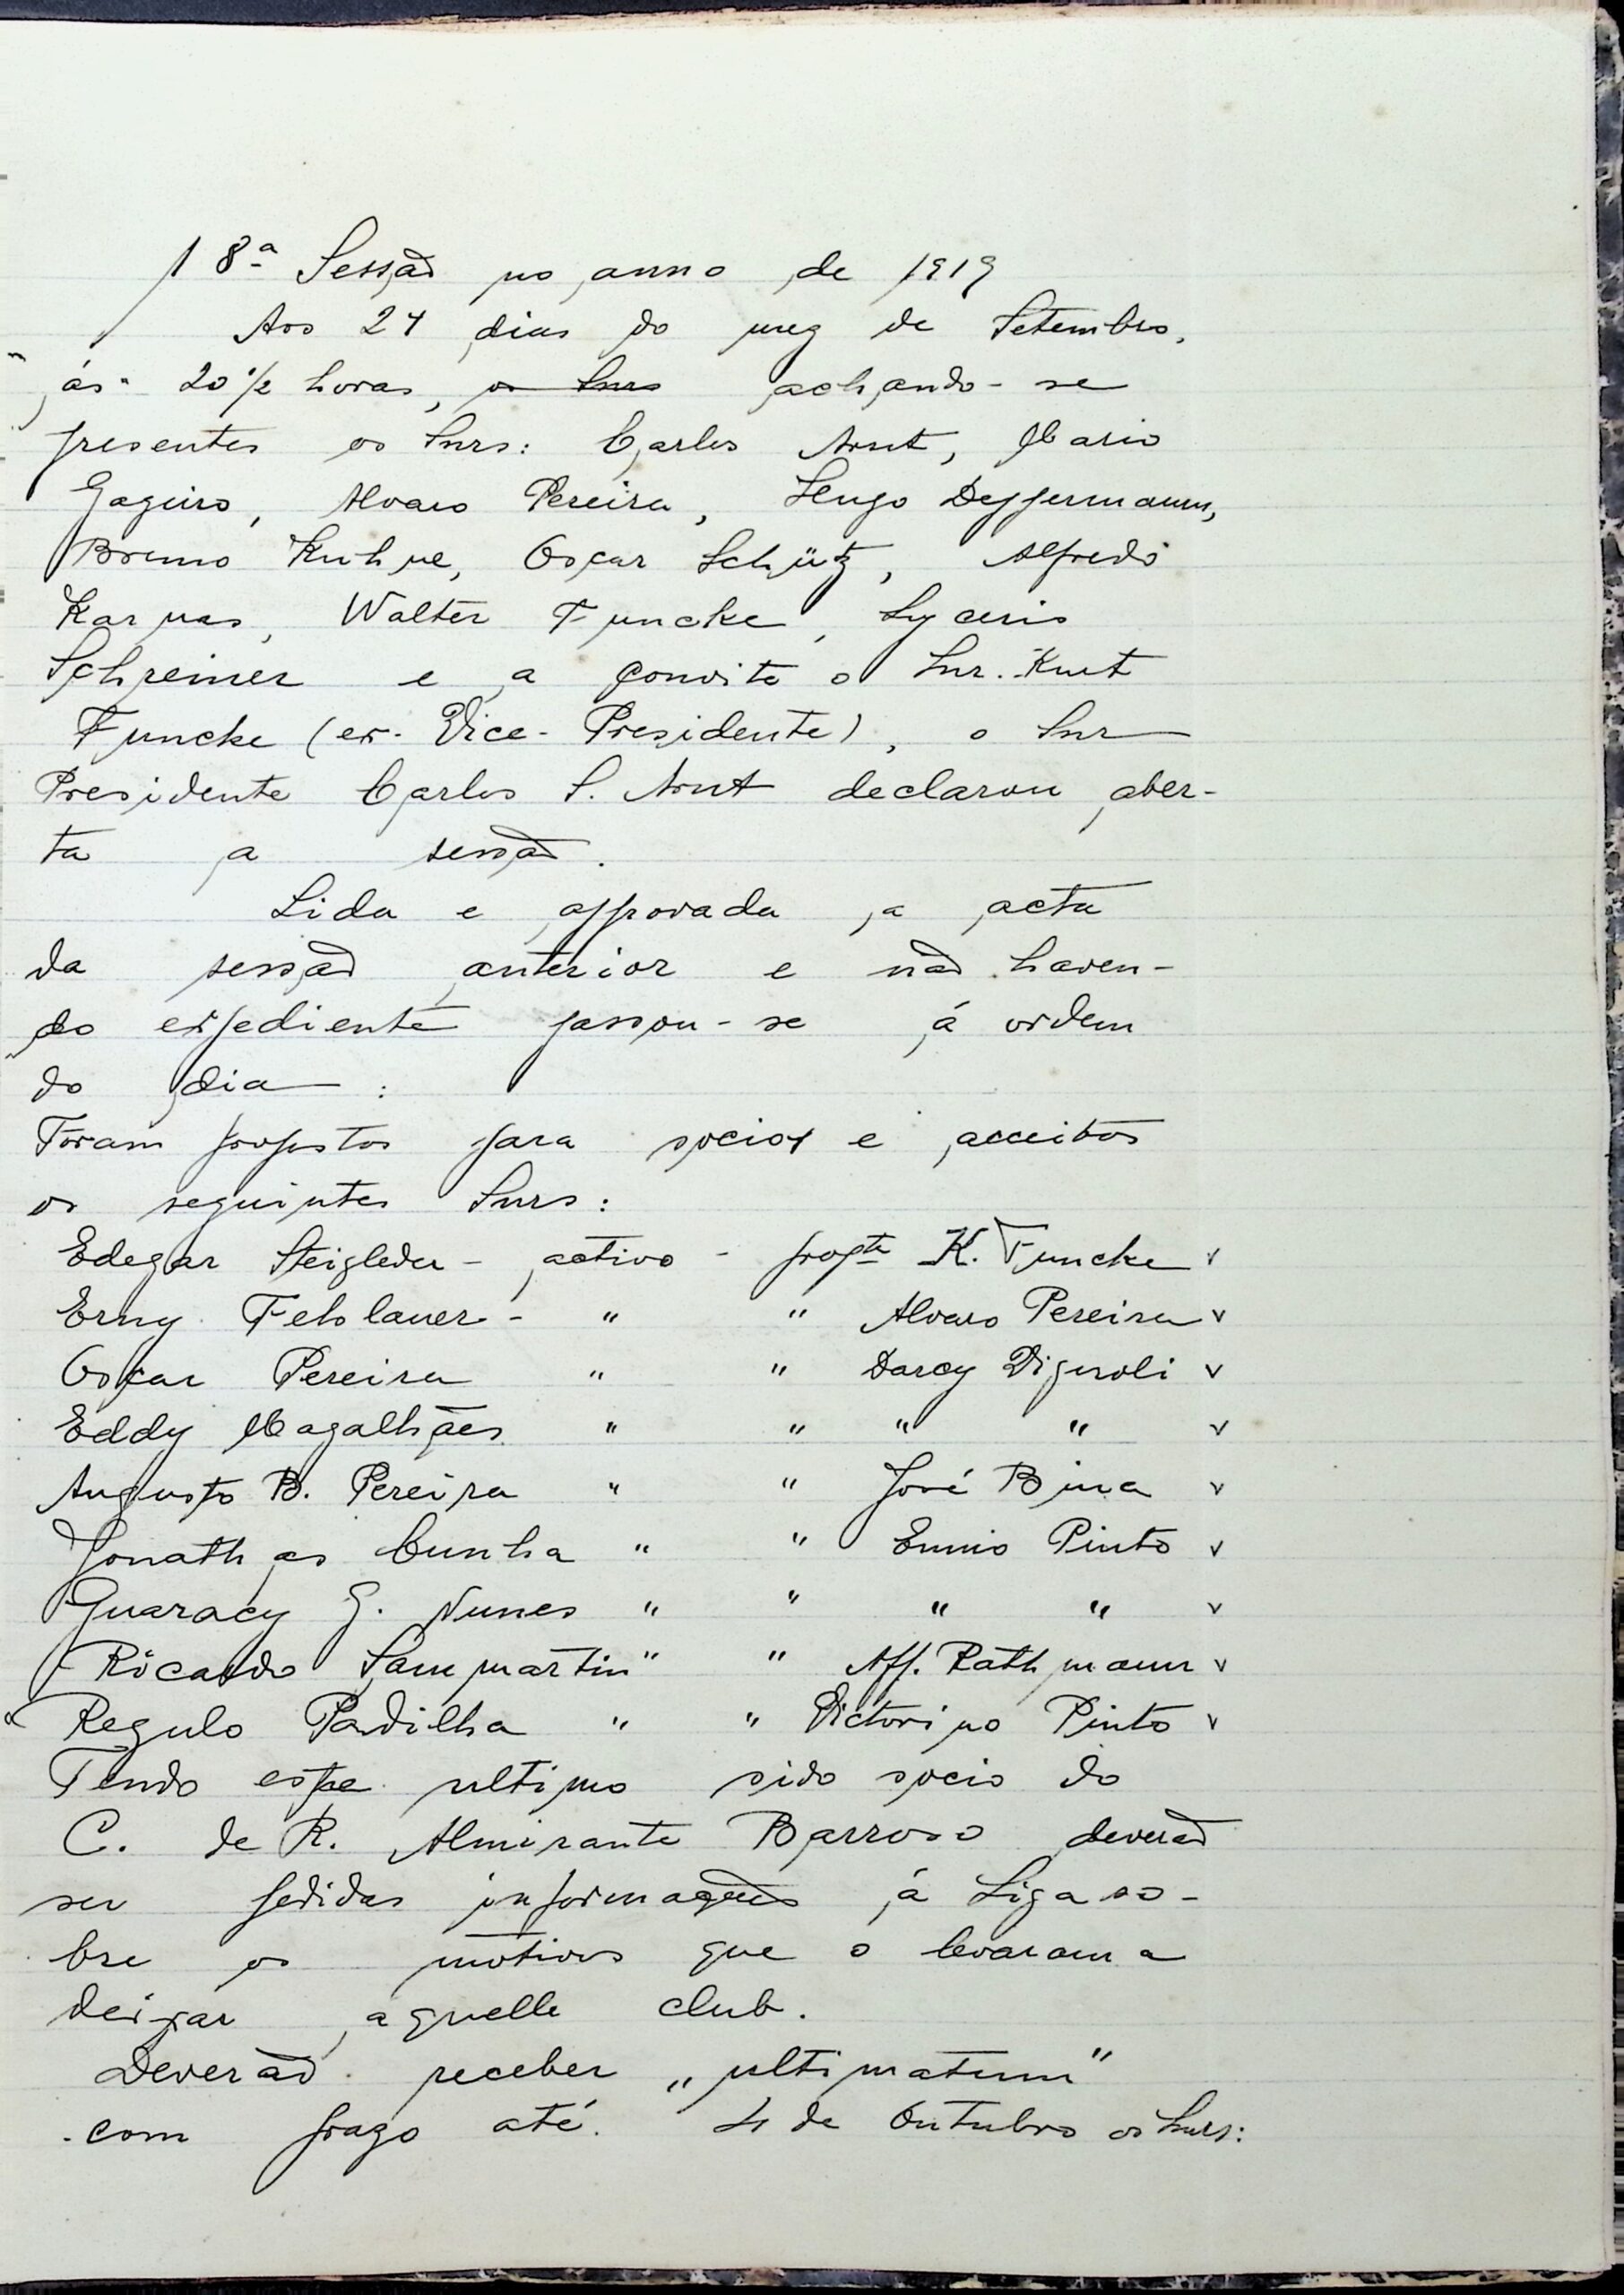 18ª Sessão no anno de 1919
Aos 24 dias do mez de Setembro,
ás 20 1/2 horas, os Snrs achando-se
presentes os Snrs: Carlos Arnt, Mario
Gageiro, Alvaro Pereira, Hugo Deppermann,
Bruno Kuhne, Oscar Schütz, Alfredo
Karnas, Walter Funcke, Lyceris
Schreiner e a convite o Snr. Kurt
Funcke (ex-Vice-Presidente), o Snr
Presidente Carlos S. Arnt declarou aber-
ta a sessão.
Lida e approvada a acta
da sessão anterior e não haven-
do expediente passou-se á ordem
do dia:
Foram propostos para socios e acceitos
os seguintes Snrs:
Edegar Steigleder - activo - propte K. Funcke v
Erny Fehlauer - " " Alvaro Pereira v
Oscar Pereira " " Darcy Vignoli v
Eddy Magalhães " " " " v
Augusto B. Pereira " " José Bina v
Jonathas Cunha " " Ennio Pinto v
Guaracy G. Nunes " " " " v
Ricardo Sanmartin " " Aff. Rathmann v
Regulo Padilha " " Victorino Pinto v
Tendo este ultimo sido socio do
C. de R. Almirante Barroso deverão
ser pedidas informações á Liga so-
bre os motivos que o levaram a
deixar aquelle club.
Deverão receber „ultimatum"
com prazo até 4 de Outubro os Snrs: